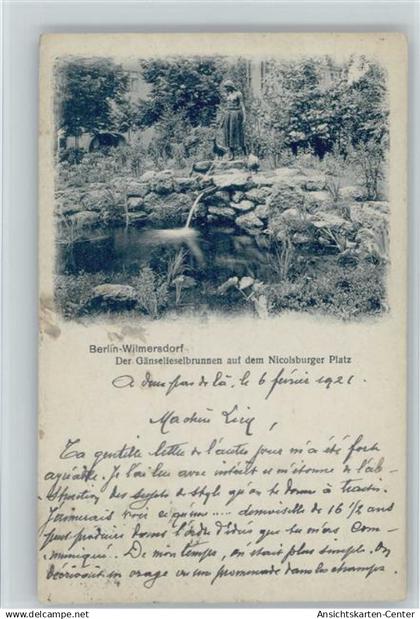 Berlin-Wilmersdorf
Der Gänselieselbrunnen auf dem Nicolsburger Platz
A deux pas de là, le 6 février 1921.
Ma chère Licy,
Ta gentille lettre de l'autre jour m'a été fort
agréable. Je l'ai lue avec intérêt et m'étonne de l'ab-
straction des sujets de style qu'on te donne à traiter.
J'aimerais voir ce qu'une .... demoiselle de 16 1/2 ans
peut produire dans l'ordre d'idées que tu m'as com-
muniqué. De mon temps, on était plus simple. On
décrivait un orage ou une promenade dans les champs.
© Ansichtskarten-Center.de